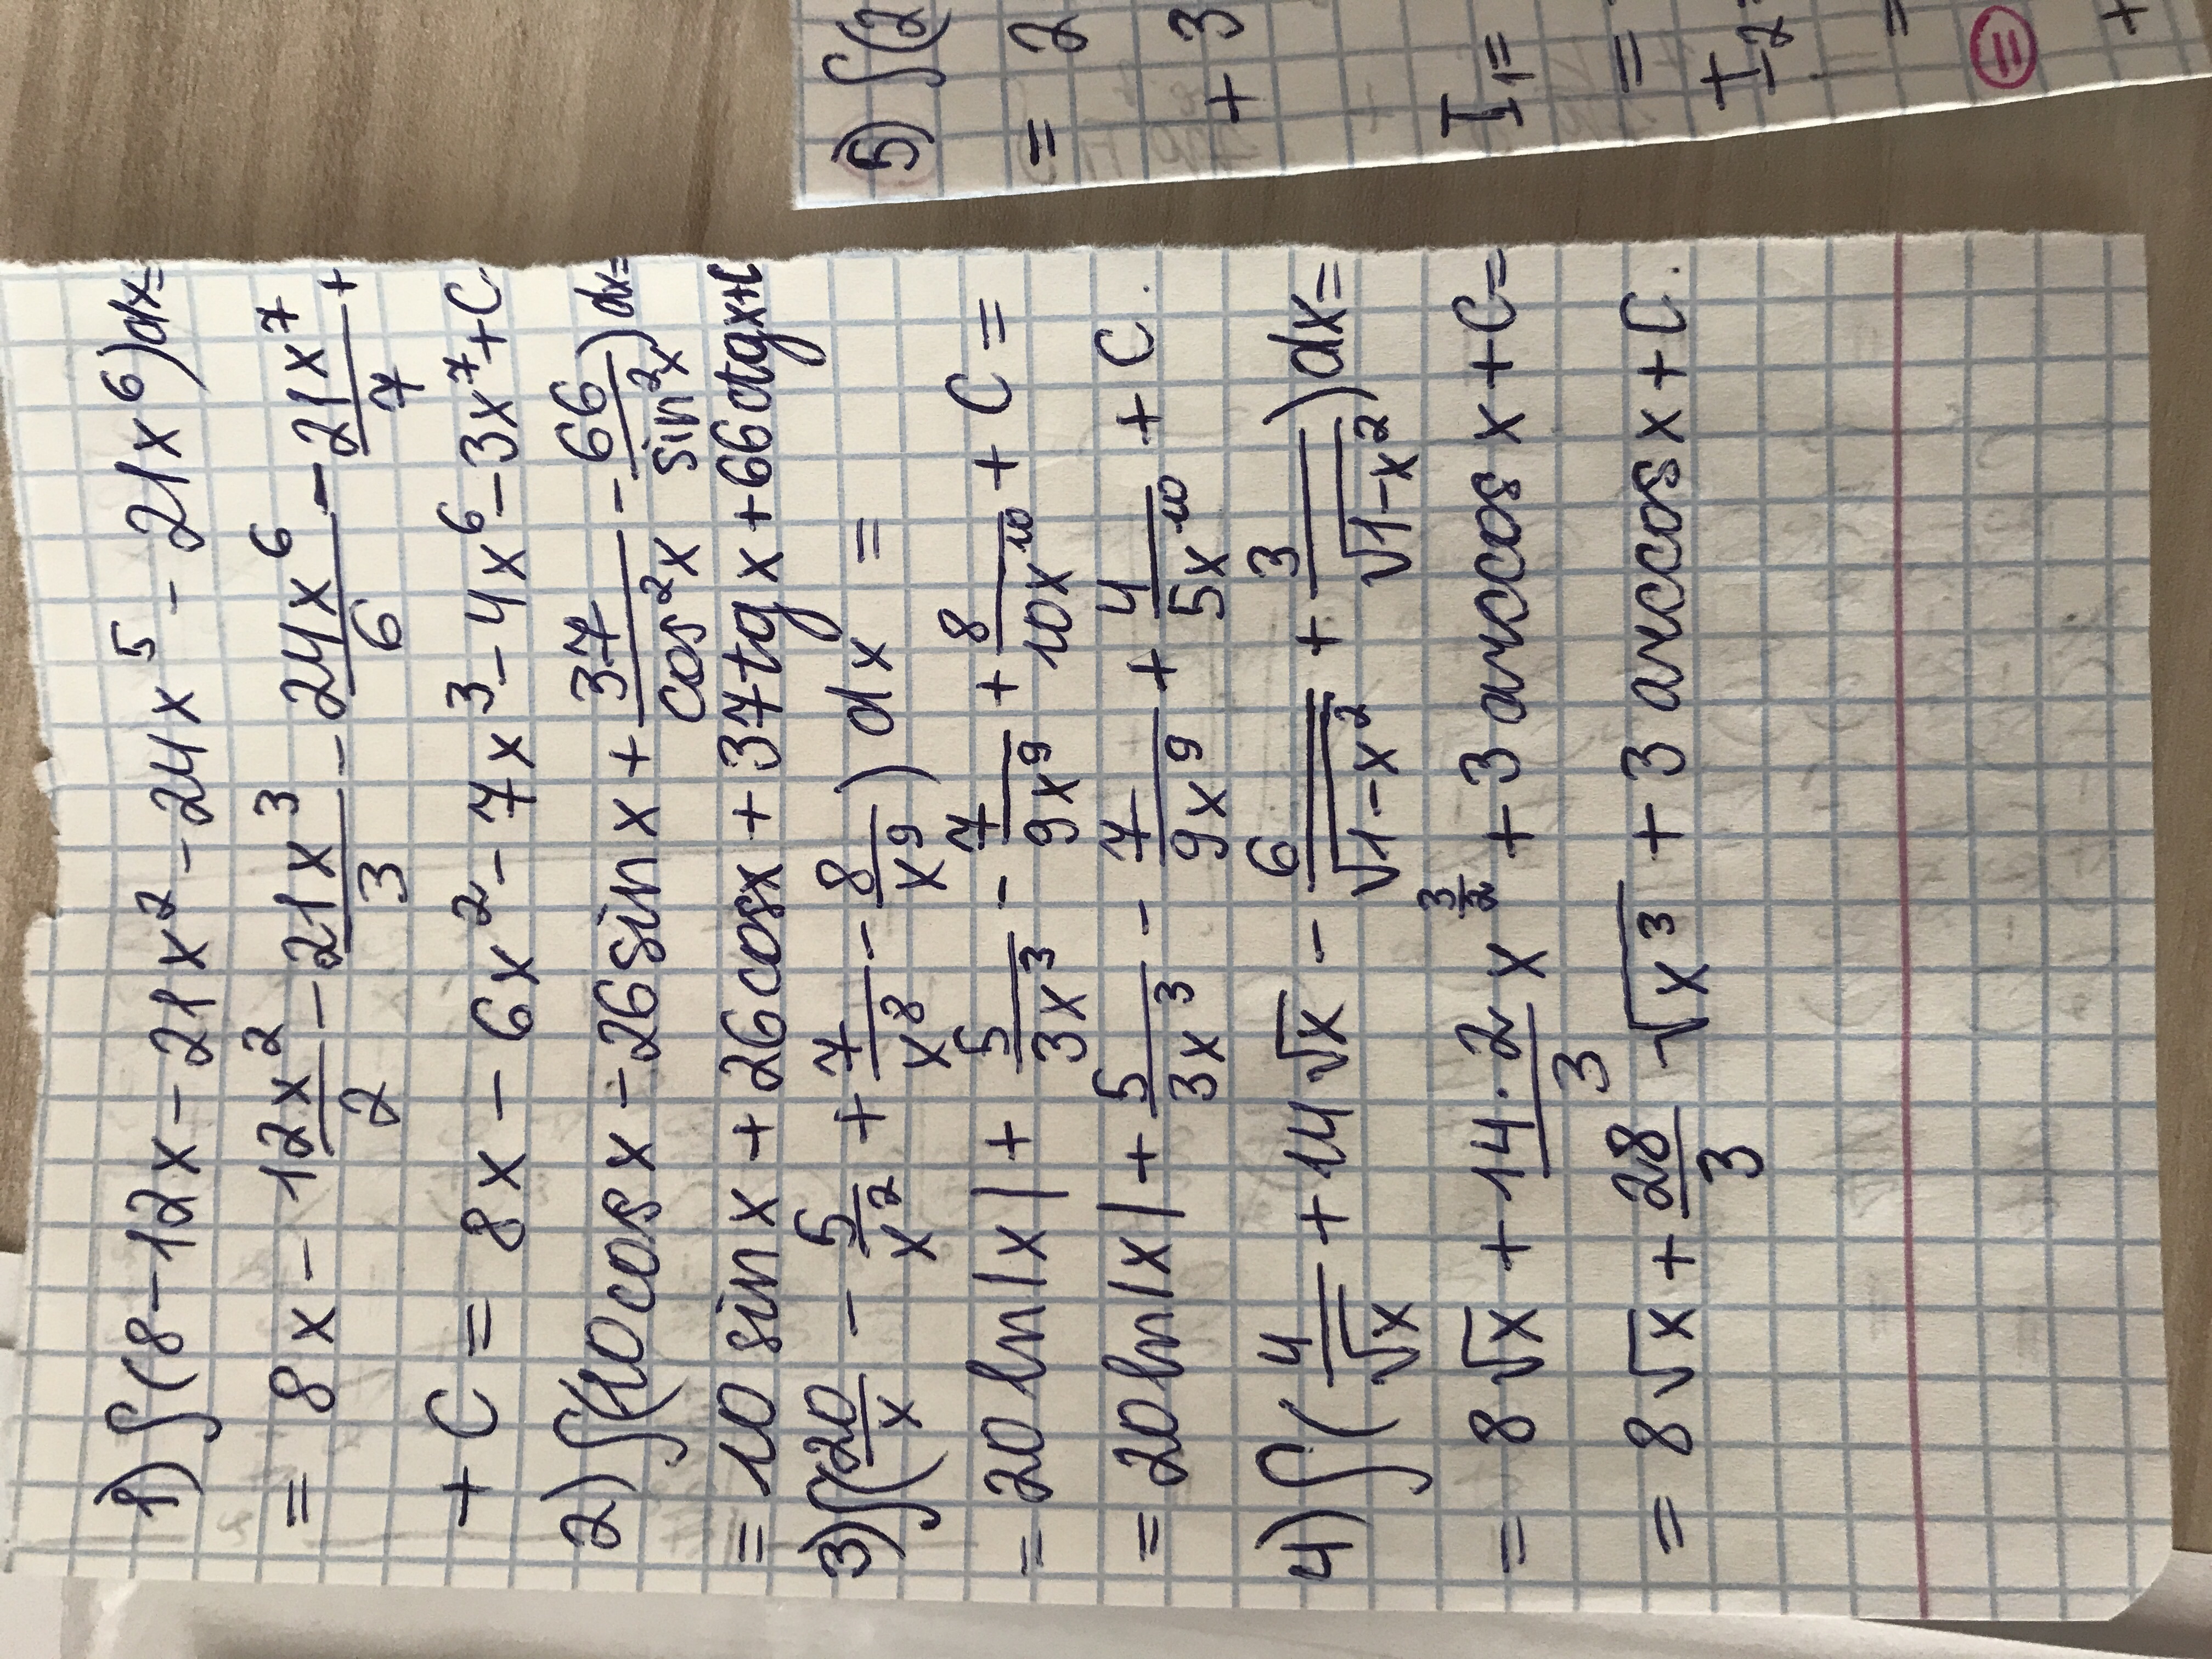 1) ∫(8-12x-21x²-24x⁵-21x⁶)dx=
= 8x - 12x²/2 - 21x³/3 - 24x⁶/6 - 21x⁷/7 +
+ C = 8x - 6x² - 7x³ - 4x⁶ - 3x⁷ + C.
2) ∫(10cosx - 26sinx + 37/cos²x - 66/sin²x)dx=
= 10 sin x + 26cosx + 37tgx + 66ctgx+C
3) ∫(20/x - 5/x² + 7/x⁸ - 8/x⁹)dx =
= 20 ln|x| + 5/3x³ - 7/9x⁹ + 8/10x¹⁰ + C =
= 20 ln|x| + 5/3x³ - 7/9x⁹ + 4/5x¹⁰ + C.
4) ∫(4/√x + 14√x - 6/√1-x² + 3/√1-x²)dx=
= 8√x + 14·2/3 x^3/2 + 3 arccos x + C =
= 8√x + 28/3 √x³ + 3 arccos x + C.
5) ∫(2
= 2
+ 3
I₁=
=
I₂
=
=
+